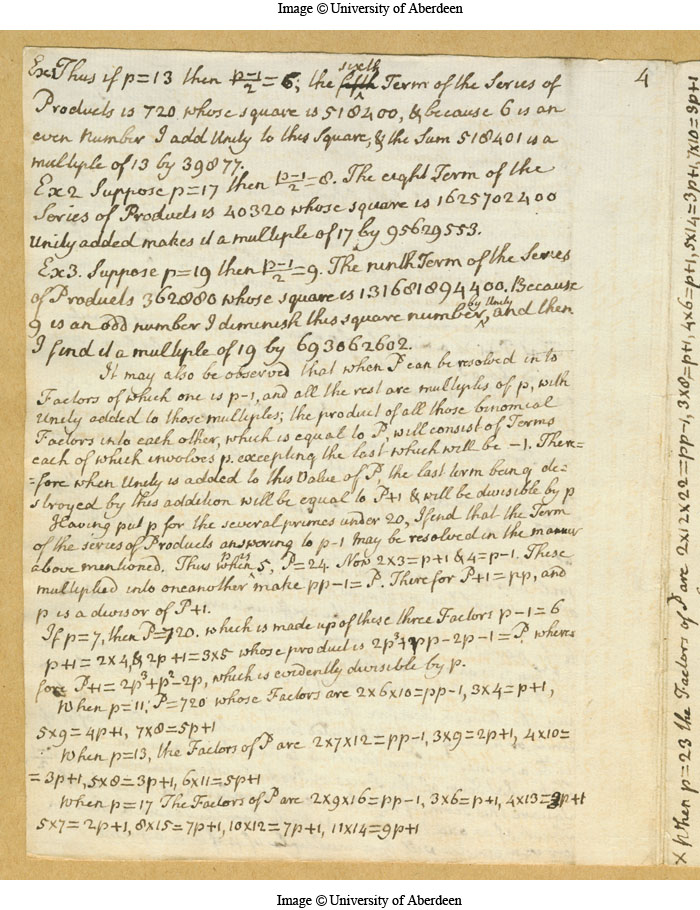 Image © University of Aberdeen
4
Ex1 Thus if p=13 then p-1/2=6; the fifth sixth Term of the Series of
Products is 720 whose square is 518400, & because 6 is an
even Number I add Unity to this Square, & the Sum 518401 is a
multiple of 13 by 39877.
Ex 2 Suppose p=17 then p-1/2=8. The eight Term of the
Series of Products is 40320 whose square is 1625702400
Unity added makes it a multiple of 17 by 95629553.
Ex 3. Suppose p=19 then p-1/2=9. The ninth Term of the Series
of Products 362880 whose square is 131681894400. Because
9 is an odd number I diminish this square number by Unity, and then
I find it a multiple of 19 by 6930626021.
It may also be observed that when P can be resolved in to
Factors of which one is p-1, and all the rest are multiples of p, with
Unity added to those multiples; the product of all those binomial
Factors into each other, which is equal to P, will consist of Terms
each of which involves p. excepting the last which will be -1. There=
=fore when Unity is added to this Value of P, the last term being de=
stroyed by this addition will be equal to P+1 & will be divisible by p
Having put p for the several primes under 20, I find that the Term
of the series of Products answering to p-1 may be resolved in the manner
above mentioned. Thus when p is 5, P=24. Now 2x3=p+1 & 4=p-1. These
multiplied into oneanother make pp-1=P. Therefor P+1=pp, and
p is a divisor of P+1.
If p=7, then P=720. which is made up of these three Factors p-1=6
p+1=2x4, & 2p+1=3x5 whose product is 2p³+pp-2p-1=P. where=
fore P+1=2p³+p²-2p, which is evidently divisible by p.
When p=11; P=720 whose Factors are 2x6x10=pp-1, 3x4=p+1,
5x9=4p+1, 7x8=5p+1
When p=13, the Factors of P are 2x7x12=pp-1, 3x9=2p+1, 4x10=
=3p+1, 5x8=3p+1, 6x11=5p+1
When p=17 The Factors of P are 2x9x16=pp-1, 3x6=p+1, 4x13=3p+1
5x7=2p+1, 8x15=7p+1, 10x12=7p+1, 11x14=9p+1
x When p=23 the Factors of P are 2x12x22=pp-1, 3x8=p+1, 4x6=p+1, 5x14=3p+1, 7x10=3p+1
Image © University of Aberdeen